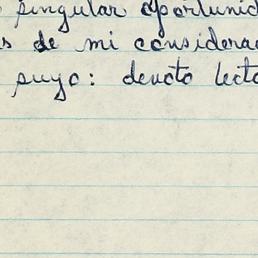 singular oportunid
s de mi considerac
suyo: devoto lecto